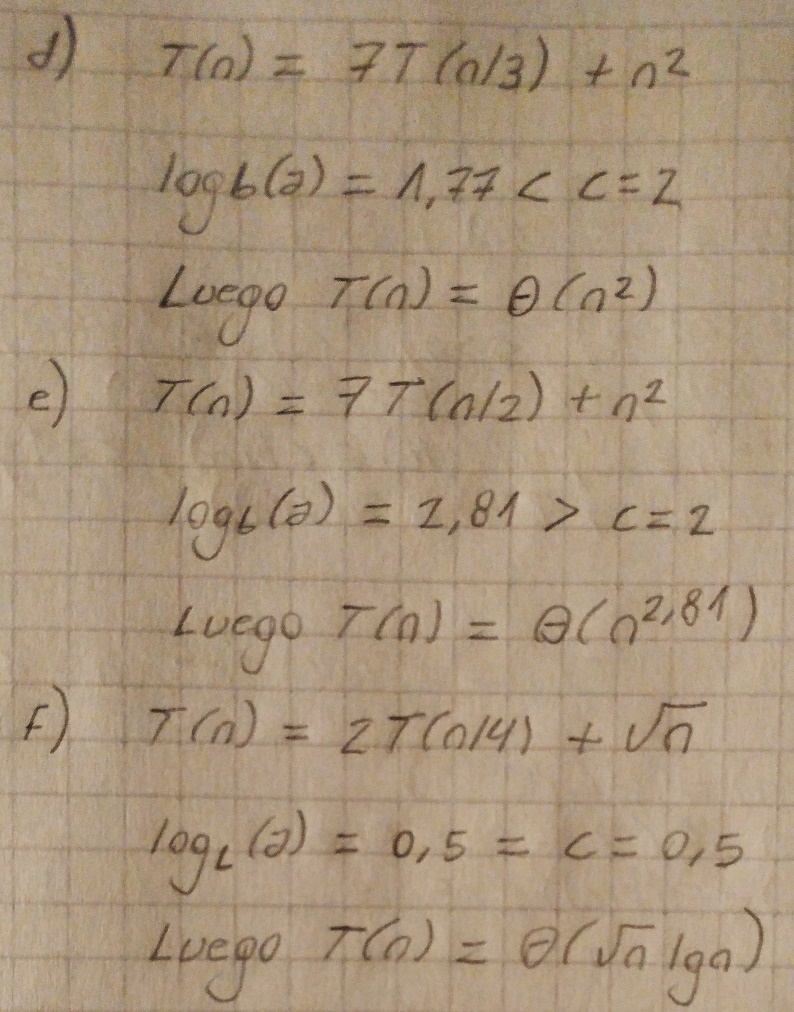 d) T(n) = 7T(n/3) + n²
logb(a) = 1,77 < c=2
Luego T(n) = θ(n²)
e) T(n) = 7T(n/2) + n²
log_b(a) = 2,81 > c=2
Luego T(n) = θ(n^2,81)
f) T(n) = 2T(n/4) + √n
log_b(a) = 0,5 = c = 0,5
Luego T(n) = θ(√n lgn)